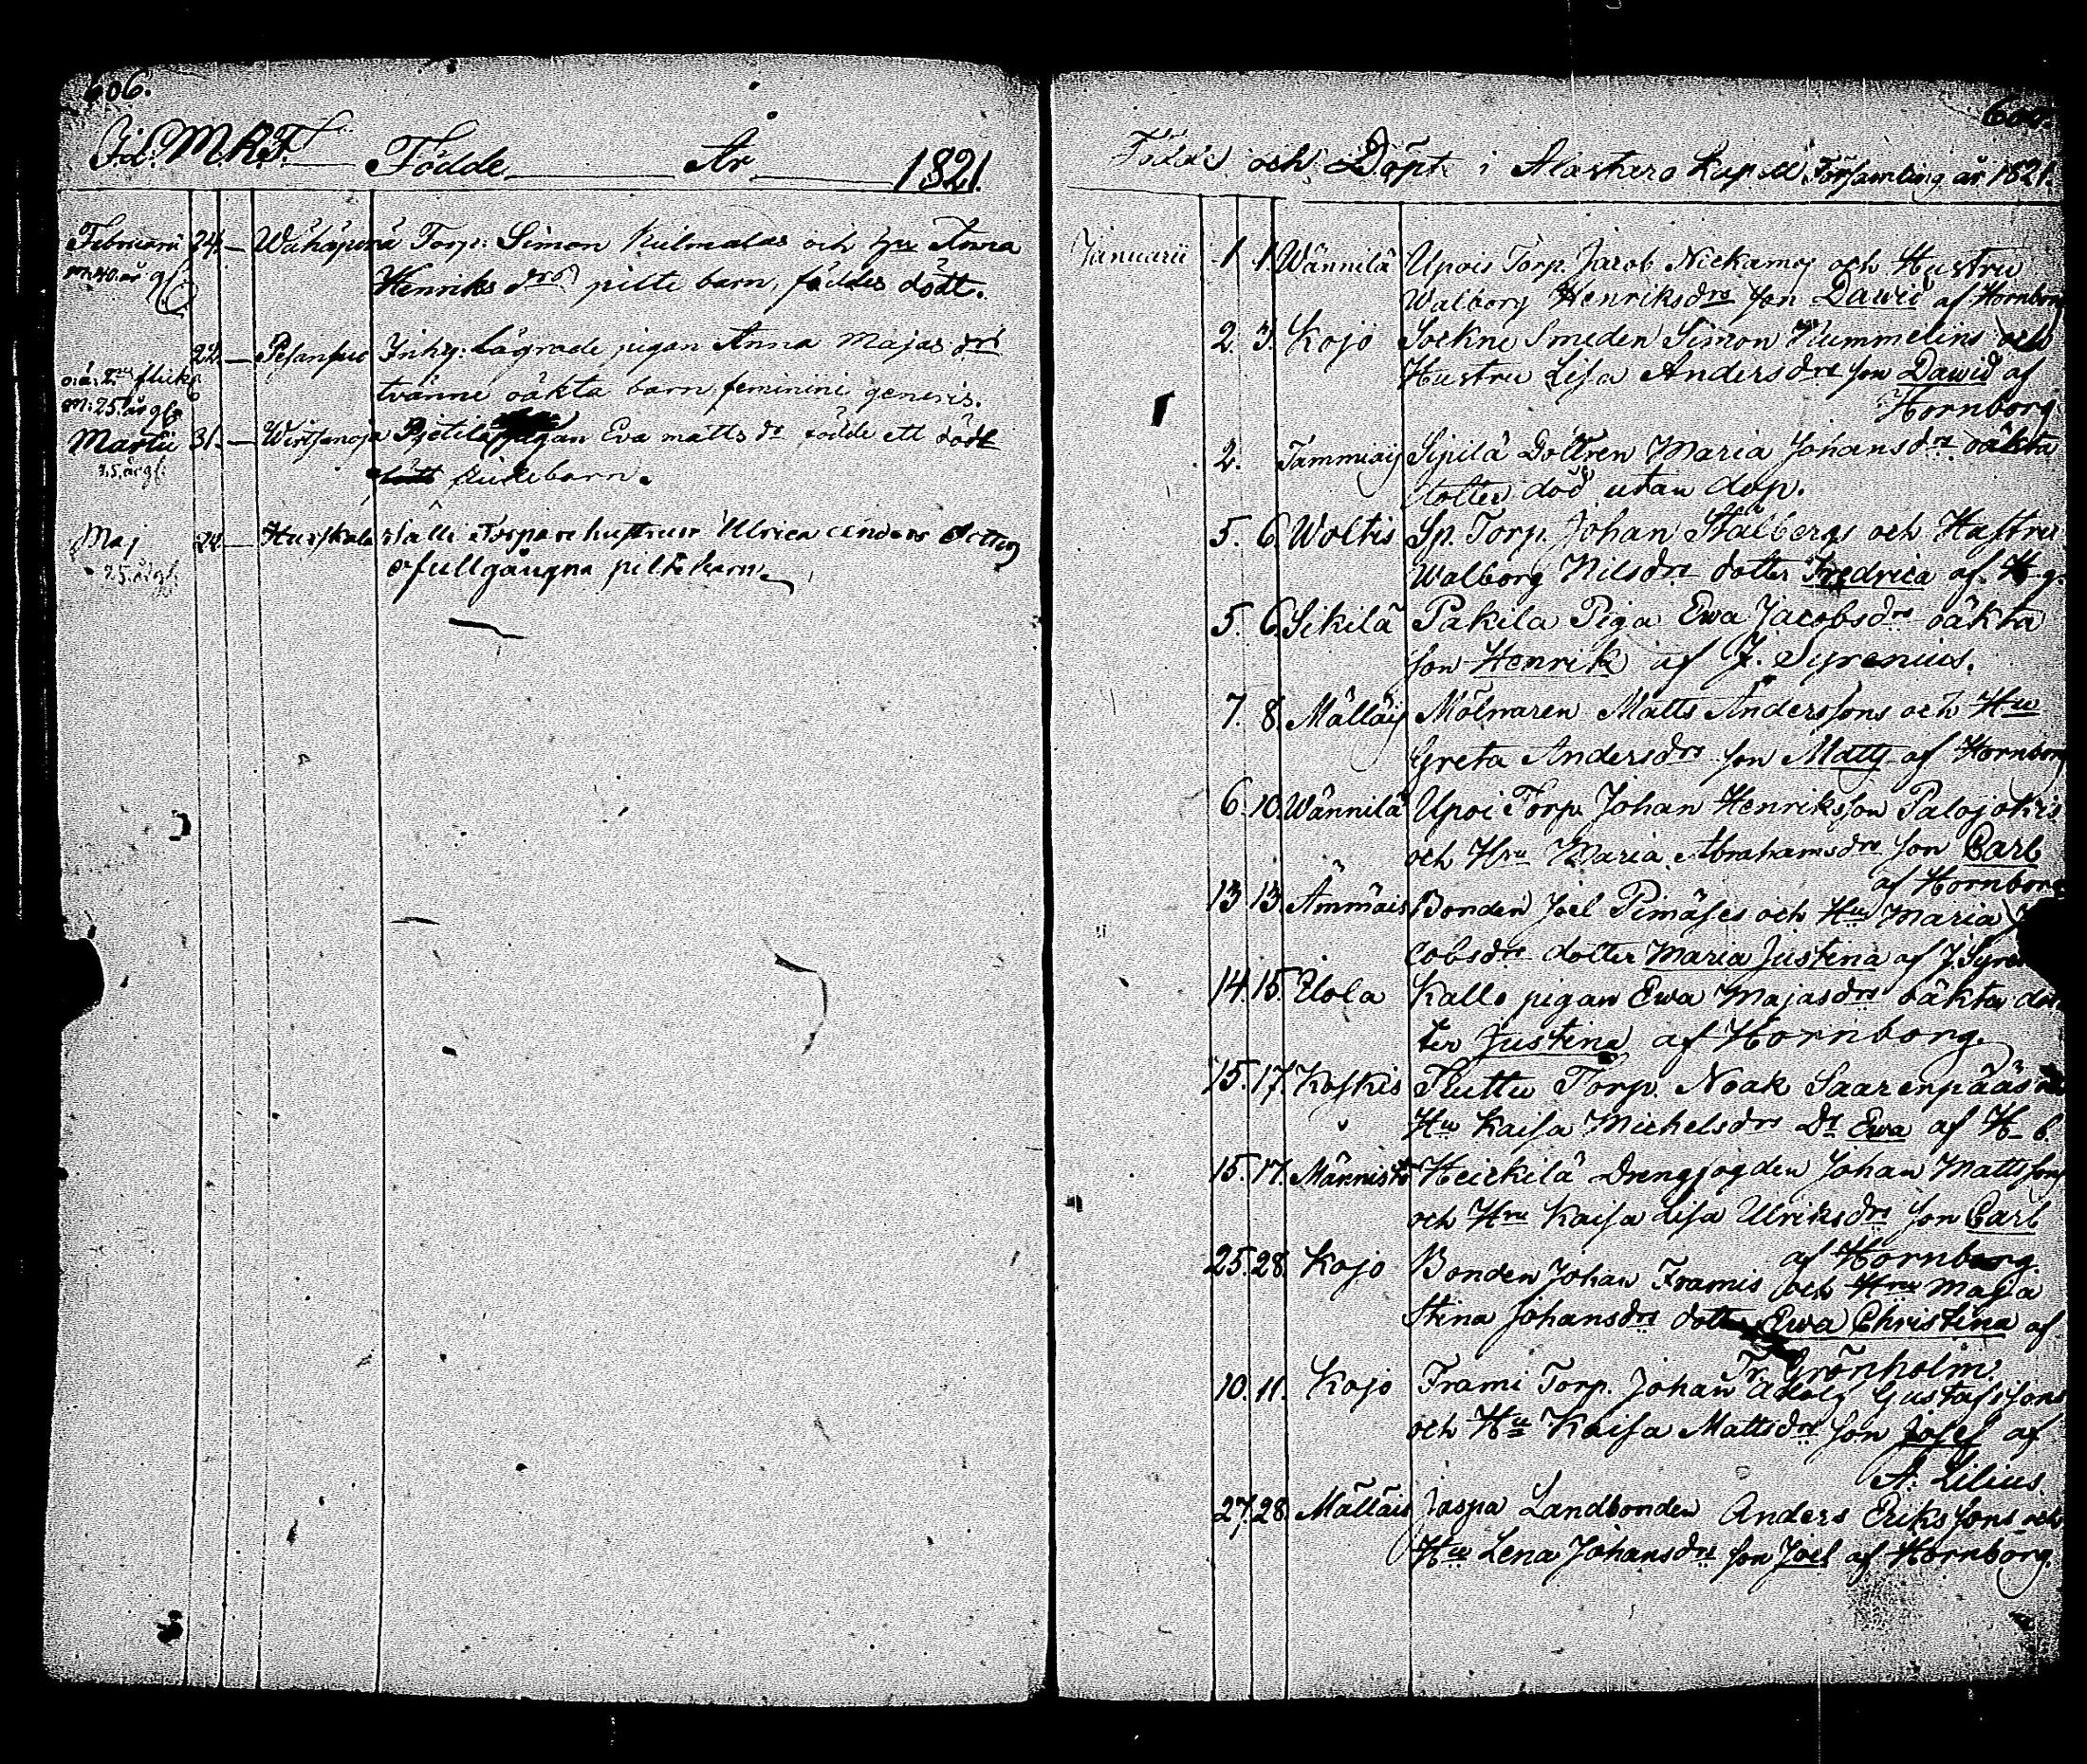 606.
Födde År 1821.
Februarii 24. — Torp. Simon Kulmalas och Hru Anna
Henriks drs pilte barn, föddes dödt.
22. — Inhy. lägrade pigan Anna Majas drs
tvänne oäkta barn feminini generis.
m: 25. år gl.
Martii 31. — Pietilä pigan Eva Matts dr födde ett dödt
flickebarn.
35. år gl.
Maj 22 — Torpare hustrun Ulrica Anders dotter
ofullgångna pilte barn.
25. år gl.
Födde och Döpte i Alastaro Kapell Församling år 1821.
Januarii 1. 1. Wännilä Upois Torp. Jacob Nickamaj och Hustru
Walborg Henriksdrs son Dawid af Hornborg
2. 3. Kojo Sockne Smeden Simon Kummelins och
Hustru Lisa Andersdrs son Dawid af
Hornborg
2. Tammiaij Sipilä Dottren Maria Johansdrs oäkta
dotter död utan dop.
5. 6. Woltis Sp. Torp. Johan Stålbergs och Hustru
Walborg Nilsdrs dotter Fredrica af H-g.
5. 6. Sikilä Pakila Piga Ewa Jacobsdrs oäkta
son Henrik af J. Syrenius.
7. 8. Mälläij Mölnaren Matts Anderssons och Hru
Greta Andersdrs son Matts af Hornborg
6. 10. Wännilä Upoi Torp. Johan Henriksson Palojokis
och Hru Maria Abrahamsdrs son Carl
af Hornborg
13. 13. Ämmäis Bonden Joel Pimäses och Hru Maria
cobsdrs dotter Maria Justina af J. Syre
14. 15. Ylola Kallo pigan Ewa Majasdrs oäkta dot
ter Justina af Hornborg.
15. 17. Koskis Tluttu Torp. Noak Saarenpääs
Hru Kaisa Michelsdrs Dr Ewa af H-b.
15. 17. Männistö Heickilä Drengfogden Johan Mattssons
och Hru Kaisa Lisa Ulriksdrs son Carl
af Hornborg.
25. 28. Kojo Bonden Johan Framis och Hru Maja
Stina Johansdrs dotter Ewa Christina af
Fr. Grönholm.
10. 11. Kojo Frami Torp. Johan Adolf Gustafssons
och Hru Kaisa Mattsdrs son Josef af
A. Lilius
27. 28. Mälläis Jaspa Landbonden Anders Erikssons och
Hru Lena Johansdrs son Joel af Hornborg.